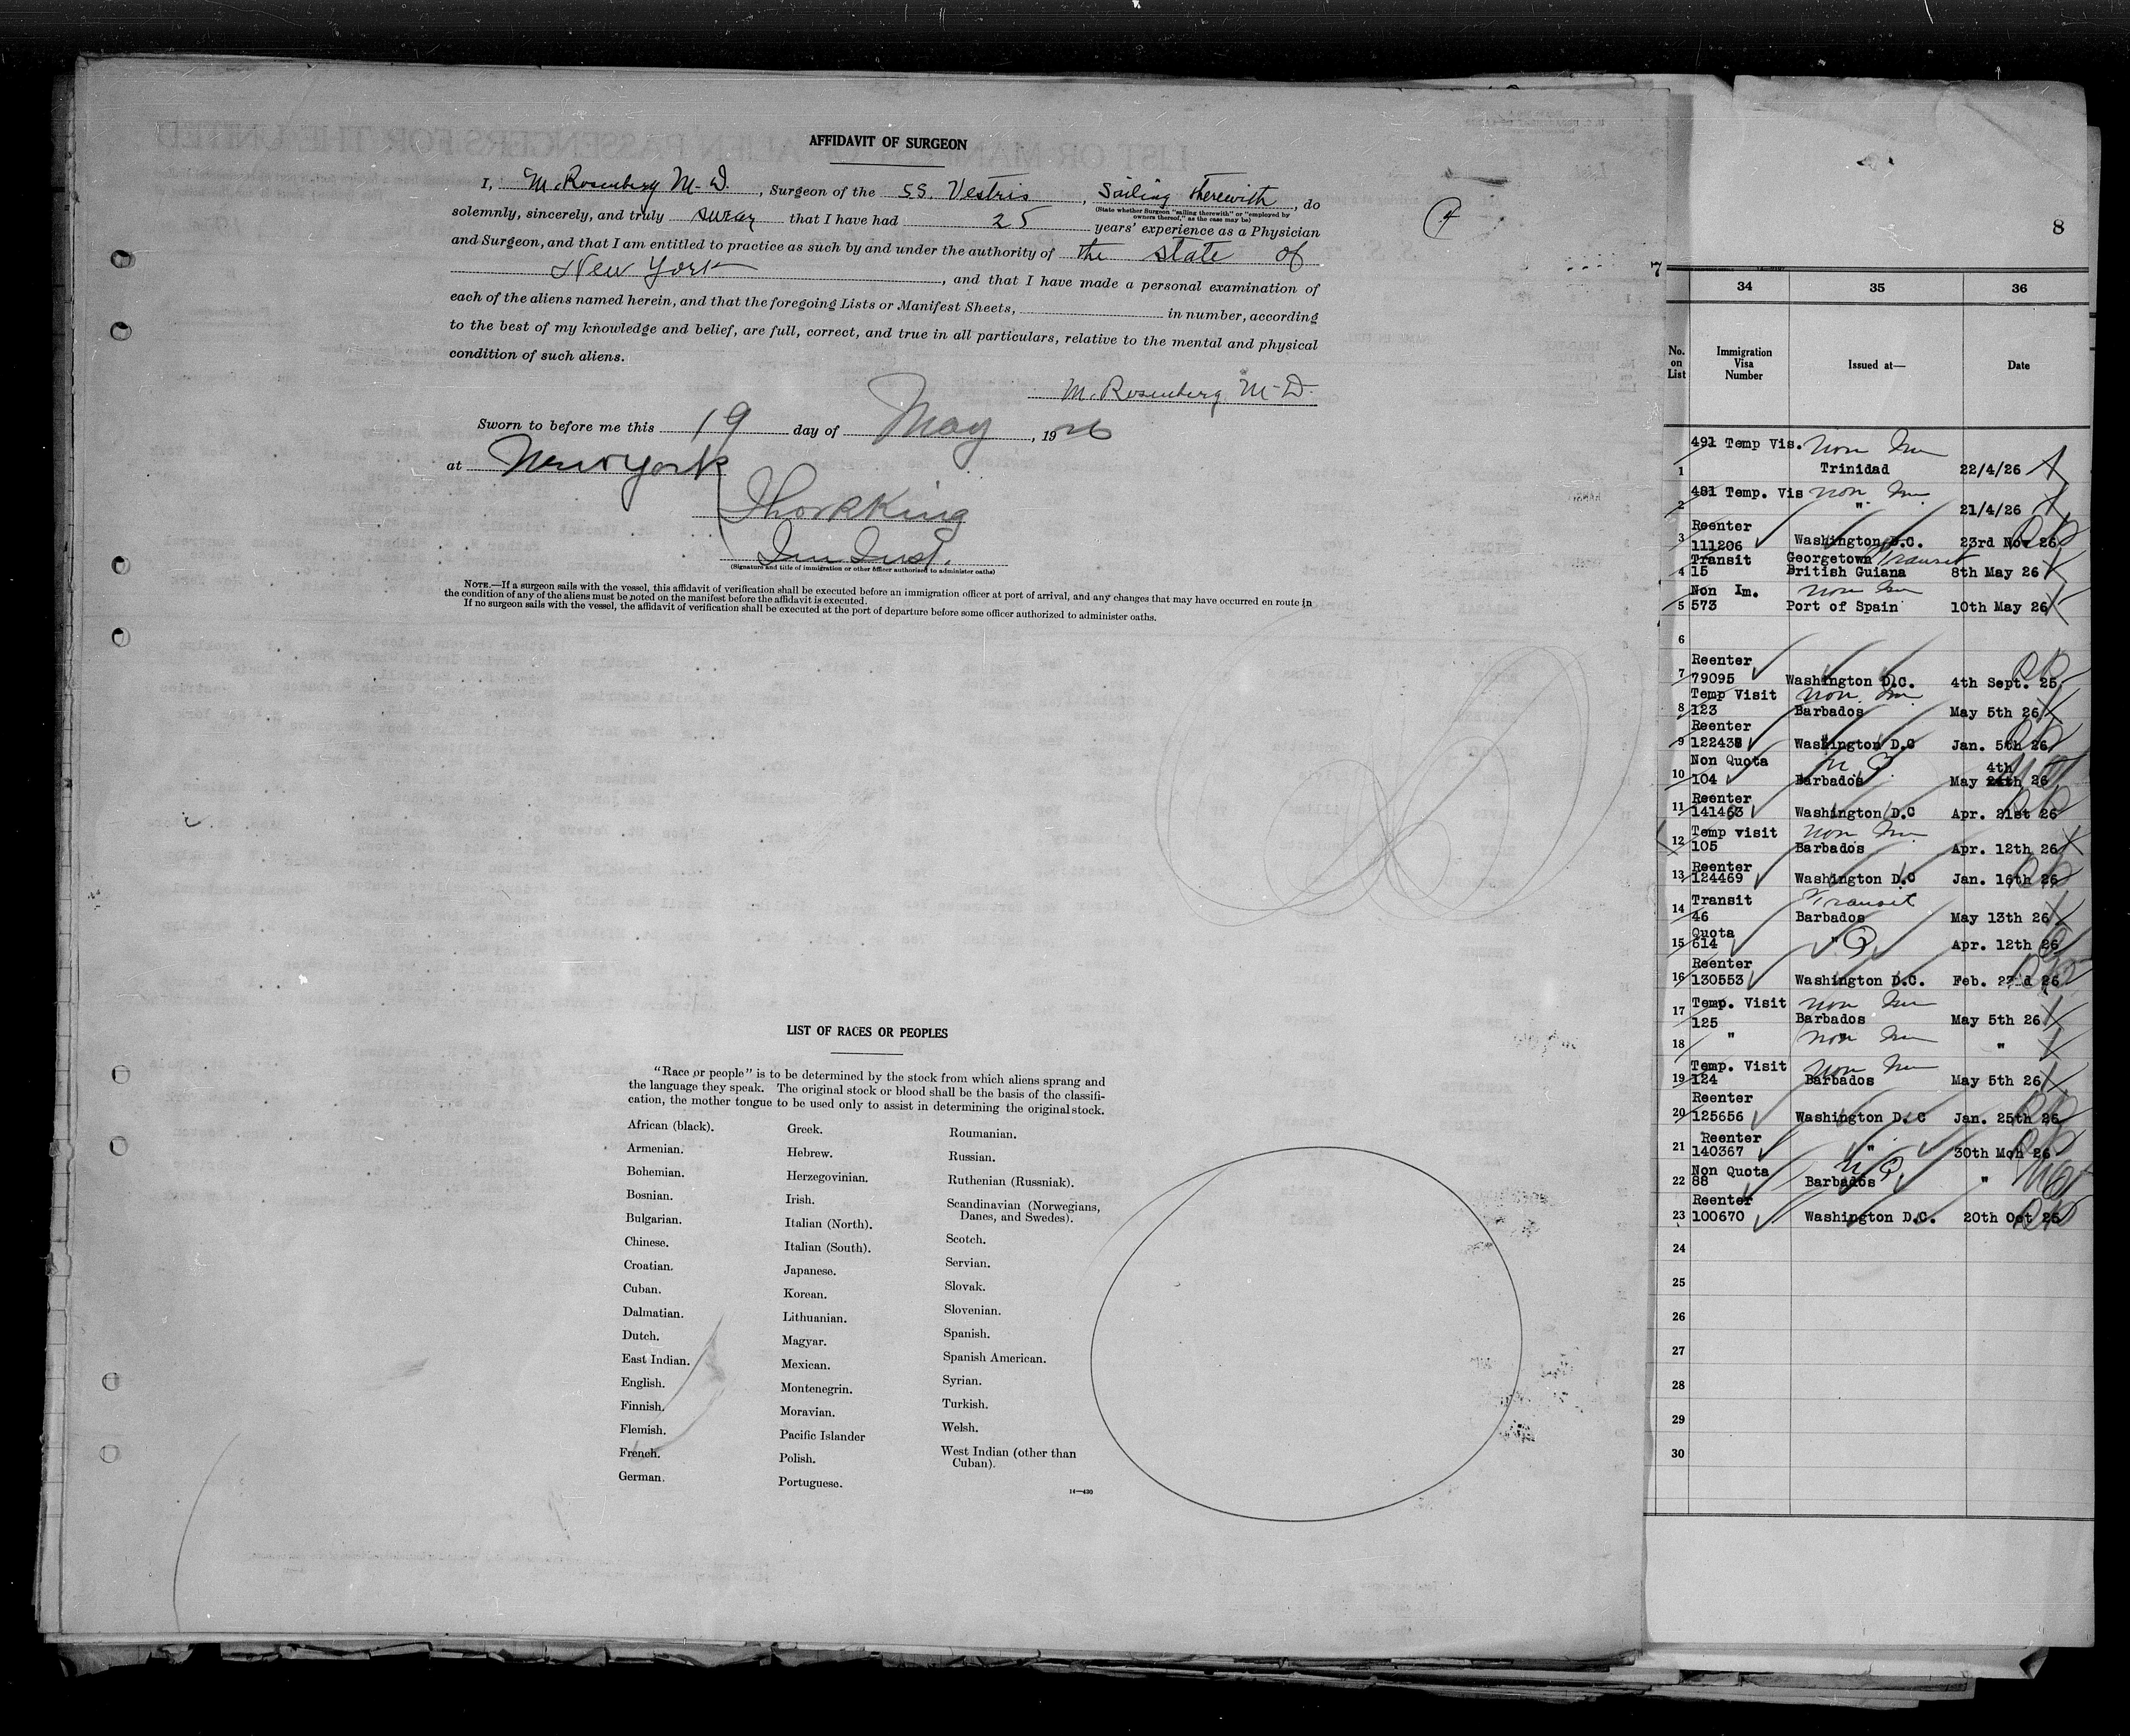 AFFIDAVIT OF SURGEON
I, M. Rosenberg M-D. , Surgeon of the SS. Vestris , Sailing therewith , do
(State whether Surgeon "sailing therewith" or "employed by
owners thereof," as the case may be)
solemnly, sincerely, and truly swear that I have had 25 years' experience as a Physician
and Surgeon, and that I am entitled to practice as such by and under the authority of the state of
New York , and that I have made a personal examination of
each of the aliens named herein, and that the foregoing Lists or Manifest Sheets, in number, according
to the best of my knowledge and belief, are full, correct, and true in all particulars, relative to the mental and physical
condition of such aliens.
M. Rosenberg M-D.
Sworn to before me this 19 day of May , 1926
at New York
(Signature and title of immigration or other officer authorized to administer oaths)
NOTE.—If a surgeon sails with the vessel, this affidavit of verification shall be executed before an immigration officer at port of arrival, and any changes that may have occurred en route in
the condition of any of the aliens must be noted on the manifest before the affidavit is executed.
If no surgeon sails with the vessel, the affidavit of verification shall be executed at the port of departure before some officer authorized to administer oaths.
LIST OF RACES OR PEOPLES
"Race or people" is to be determined by the stock from which aliens sprang and
the language they speak. The original stock or blood shall be the basis of the classifi-
cation, the mother tongue to be used only to assist in determining the original stock.
African (black).
Armenian.
Bohemian.
Bosnian.
Bulgarian.
Chinese.
Croatian.
Cuban.
Dalmatian.
Dutch.
East Indian.
English.
Finnish.
Flemish.
French.
German.
Greek.
Hebrew.
Herzegovinian.
Irish.
Italian (North).
Italian (South).
Japanese.
Korean.
Lithuanian.
Magyar.
Mexican.
Montenegrin.
Moravian.
Pacific Islander
Polish.
Portuguese.
Roumanian.
Russian.
Ruthenian (Russniak).
Scandinavian (Norwegians,
Danes, and Swedes).
Scotch.
Servian.
Slovak.
Slovenian.
Spanish.
Spanish American.
Syrian.
Turkish.
Welsh.
West Indian (other than
Cuban).
14—430
8
7
34 35 36
No. on List
Immigration Visa Number
Issued at—
Date
491 Temp Vis. Non Im
1 Trinidad 22/4/26
481 Temp. Vis Non Im
2 " 21/4/26
Reenter
3 111206 Washington D.C. 23rd Nov 26
Transit Georgetown Transit
4 15 British Guiana 8th May 26
Non Im. Non Im
5 573 Port of Spain 10th May 26
6
Reenter
7 79095 Washington D.C. 4th Sept. 25
Temp Visit Non Im
8 123 Barbados May 5th 26
Reenter
9 122438 Washington D.C Jan. 5th 26
Non Quota N Q. 4th
10 104 Barbados May 24th 26
Reenter
11 141463 Washington D.C Apr. 21st 26
Temp visit Non Im
12 105 Barbados Apr. 12th 26
Reenter
13 124469 Washington D.C Jan. 16th 26
Transit Transit
14 46 Barbados May 13th 26
Quota
15 614 " Q Apr. 12th 26
Reenter
16 130553 Washington D.C. Feb. 23rd 26
Temp. Visit Non Im
17 125 Barbados May 5th 26
18 " Non Im "
Temp. Visit Non Im
19 124 Barbados May 5th 26
Reenter
20 125656 Washington D.C Jan. 25th 26
Reenter
21 140367 " 30th Mch 26
Non Quota N Q
22 88 Barbados "
Reenter
23 100670 Washington D.C. 20th Oct 25
24
25
26
27
28
29
30